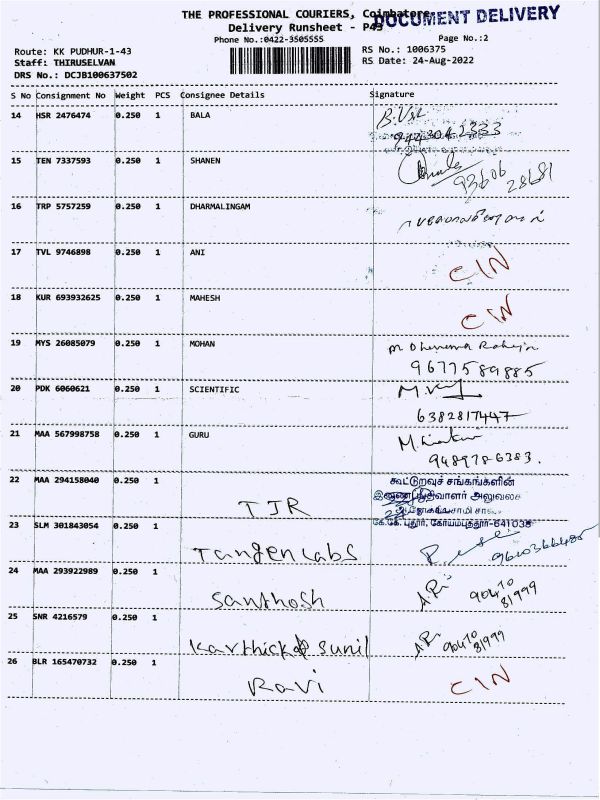 THE PROFESSIONAL COURIERS, Coimbatore
DOCUMENT DELIVERY
Delivery Runsheet - P43
Phone No.:0422-3505555
Page No.:2
Route: KK PUDHUR-1-43
RS No.: 1006375
Staff: THIRUSELVAN
RS Date: 24-Aug-2022
DRS No.: DCJB100637502
S No Consignment No Weight PCS Consignee Details Signature
14 HSR 2476474 0.250 1 BALA
15 TEN 7337593 0.250 1 SHANEN
16 TRP 5757259 0.250 1 DHARMALINGAM
17 TVL 9746898 0.250 1 ANI CIN
18 KUR 693932625 0.250 1 MAHESH CIN
19 MYS 26085079 0.250 1 MOHAN
9677589885
20 PDK 6060621 0.250 1 SCIENTIFIC
6382817447
21 MAA 567998758 0.250 1 GURU
9489786383.
22 MAA 294158040 0.250 1 TJR
கூட்டுறவுச் சங்கங்களின்
அலுவலக
கே.கே. புதூர், கோயம்புத்தூர்-641038
23 SLM 301843054 0.250 1 Tangen Labs
24 MAA 293922989 0.250 1 Santhosh
90470
81999
25 SNR 4216579 0.250 1 Karthick Sunil
90470
81999
26 BLR 165470732 0.250 1 Ravi CIN